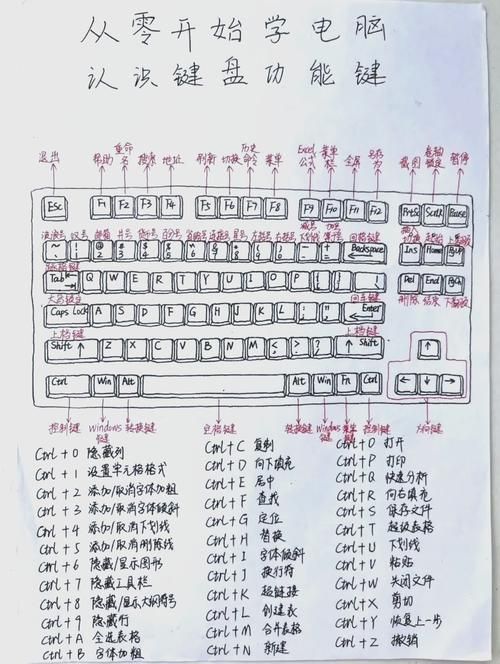 从零开始学电脑
认识键盘功能键
退出 帮助 重命名 搜索 地址 刷新 切换 历史命令 菜单 Excel公式 菜单栏 全屏 另存为 截图 卷轴锁定 暂停
Esc F1 F2 F3 F4 F5 F6 F7 F8 F9 F10 F11 F12 PrtSc Scrlk Pause
波浪号 叹号 邮箱 井号 货币号 百分号 省略号 连接号 星号 左括号 右括号 减号下划线 加号等号 回格键 插入切换 起始 上翻页
~ ` ! 1 @ 2 # 3 $ 4 % 5 ^ 6 & 7 * 8 ( 9 ) 0 - = Backspace Ins Home PgUp
跳格键
Tab Q W E R T Y U I O P { [ } ] | \ Del End PgDn
大写锁定 回车键 删除 结束 下翻页
Caps Lock A S D F G H J K L : ; " ' Enter
上档键 上档键
Shift ↑ Z X C V B N M < , > . ? / ↑ Shift ↑
Ctrl Win Alt Alt Win Fn Ctrl ← ↓ →
控制键 Windows键 转换键 空格键 转换键 Windows键 菜单键 控制键 方向键
Ctrl + 0 隐藏列
Ctrl + 1 设置单元格格式
Ctrl + 2 添加/取消字体加粗
Ctrl + 3 添加/取消字体倾斜
Ctrl + 4 添加/取消下划线
Ctrl + 5 添加/取消删除线
Ctrl + 6 隐藏/显示图形
Ctrl + 7 隐藏工具栏
Ctrl + 8 隐藏/显示大纲符号
Ctrl + 9 隐藏行
Ctrl + A 全选表格
Ctrl + B 字体加粗
Ctrl + C 复制
Ctrl + D 向下填充
Ctrl + E 居中
Ctrl + F 查找
Ctrl + G 定位
Ctrl + H 替换
Ctrl + I 字体倾斜
Ctrl + J 换行符
Ctrl + K 超链接
Ctrl + L 创建表
Ctrl + M 合并表格
Ctrl + N 新建
Ctrl + O 打开
Ctrl + P 打印
Ctrl + Q 快速分析
Ctrl + R 向右填充
Ctrl + S 保存文件
Ctrl + T 超级表格
Ctrl + U 下划线
Ctrl + V 粘贴
Ctrl + W 关闭文件
Ctrl + X 剪切
Ctrl + Y 恢复上一步
Ctrl + Z 撤销